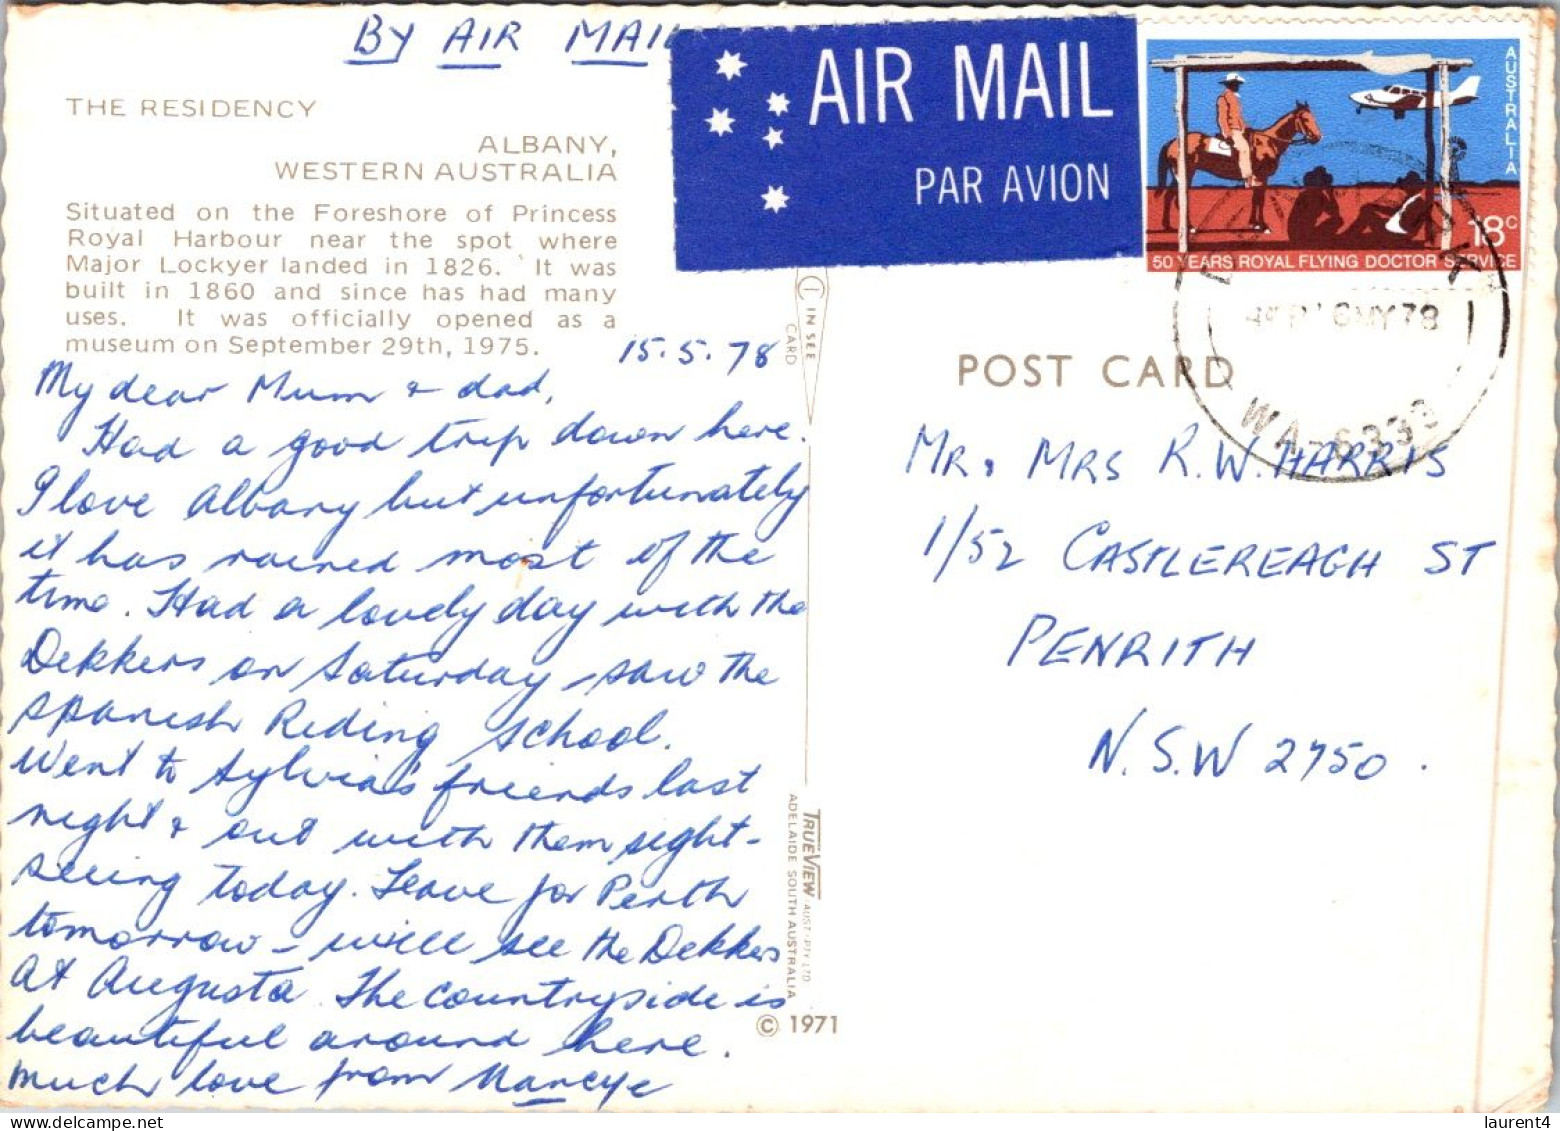 BY AIR MAIL
AIR MAIL
PAR AVION
AUSTRALIA
18c
50 YEARS ROYAL FLYING DOCTOR SERVICE
6MY78
WA-6333
THE RESIDENCY
ALBANY,
WESTERN AUSTRALIA
Situated on the Foreshore of Princess
Royal Harbour near the spot where
Major Lockyer landed in 1826. It was
built in 1860 and since has had many
uses. It was officially opened as a
museum on September 29th, 1975.
15.5.78
My dear Mum & dad,
Had a good trip down here.
I love Albany but unfortunately
it has rained most of the
time. Had a lovely day with the
Dekkers on Saturday - saw the
Spanish Riding School.
Went to Sylvia's friends last
night & out with them sight-
seeing today. Leave for Perth
tomorrow - will see the Dekkers
at Augusta. The countryside is
beautiful around here.
Much love from Nancye
IN SEE
CARD
TRUEVIEW AUST. PTY. LTD.
ADELAIDE SOUTH AUSTRALIA
© 1971
POST CARD
MR, MRS R.W. HARRIS
1/52 CASTLEREAGH ST
PENRITH
N.S.W 2750.
laurent4